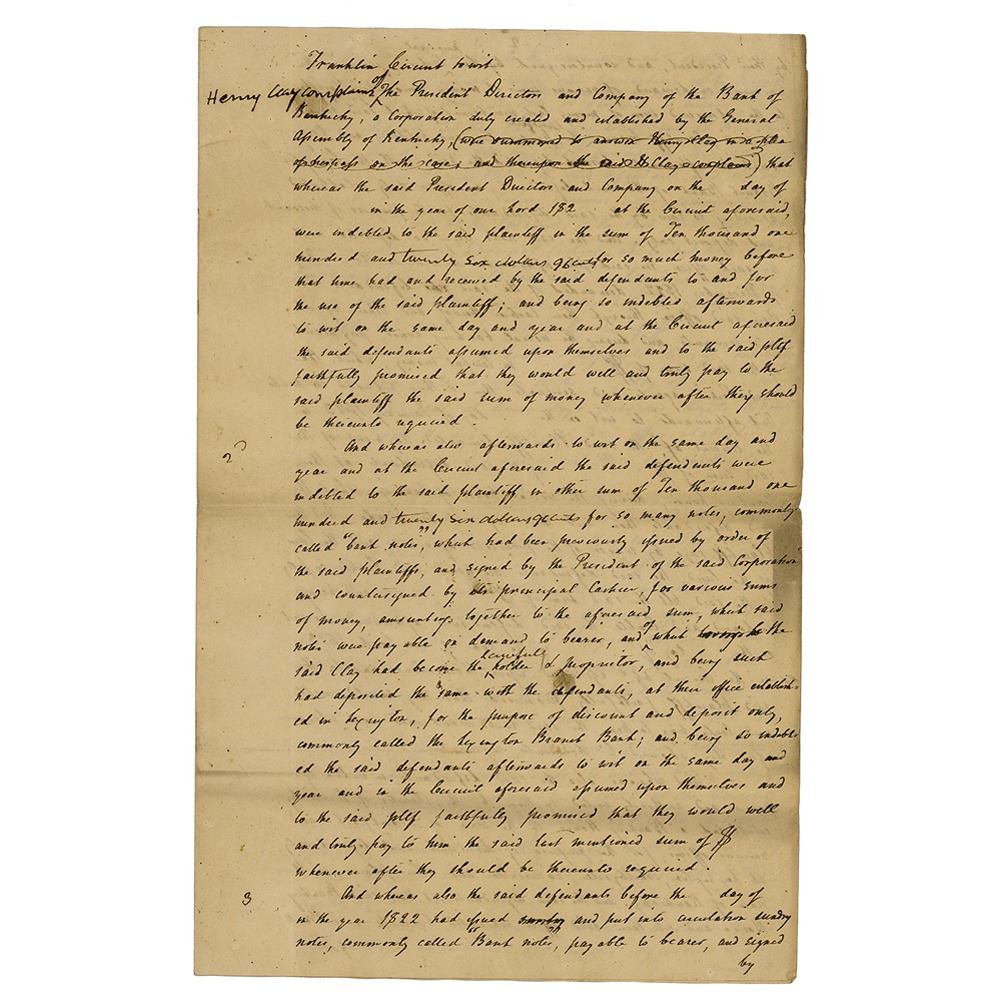 Franklin Circuit to wit
Henry Clay complains of The President Directors and Company of the Bank of
Kentucky, a Corporation duly created and established by the General
Assembly of Kentucky, (were summoned to answer Henry Clay in a plea
of trespass on the case; and thereupon the said H Clay complains) that
whereas the said President Directors and Company on the day of
in the year of our Lord 182 at the Circuit aforesaid,
were indebted to the said plaintiff in the sum of Ten thousand one
hundred and twenty six dollars 96 cents for so much money before
that time had and received by the said defendants to and for
the use of the said plaintiff; and being so indebted afterwards
to wit on the same day and year and at the Circuit aforesaid
the said defendants assumed upon themselves and to the said pltf
faithfully promised that they would well and truly pay to the
said plaintiff the said sum of money whenever after they should
be thereunto required.
2 And whereas also afterwards to wit on the same day and
year and at the Circuit aforesaid the said defendants were
indebted to the said plaintiff in other sum of Ten thousand one
hundred and twenty six dollars 96 cents for so many notes, commonly
called "bank notes", which had been previously issued by order of
the said plaintiffs, and signed by the President of the said Corporation
and countersigned by its principal Cashier, for various sums
of money, amounting together to the aforesaid sum, which said
notes were payable on demand to bearer, and of which the
said Clay had become the lawful holder & proprietor, and being such
had deposited the same with the defendants, at their office establish-
ed in Lexington, for the purpose of discount and deposit only,
commonly called the Lexington Branch Bank; and being so indebt-
ed the said defendants afterwards to wit on the same day and
year and in the Circuit aforesaid assumed upon themselves and
to the said pltf faithfully promised that they would well
and truly pay to him the said last mentioned sum of $
whenever after they should be thereunto required.
3 And whereas also the said defendants before the day of
in the year 1822 had issued and put into circulation sundry
notes, commonly called "Bank notes", payable to bearer, and signed
by